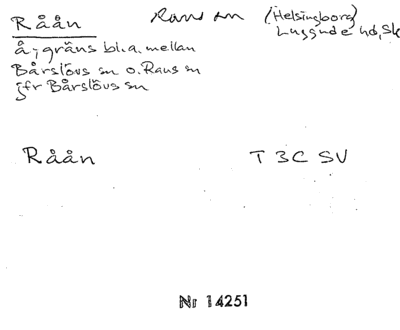 Råån Raus sn (Helsingborg)
Luggude hd, Sk
å; gräns bl.a. mellan
Bårslövs sn o. Raus sn
jfr Bårslövs sn
Råån T 3C SV
Nr 14251